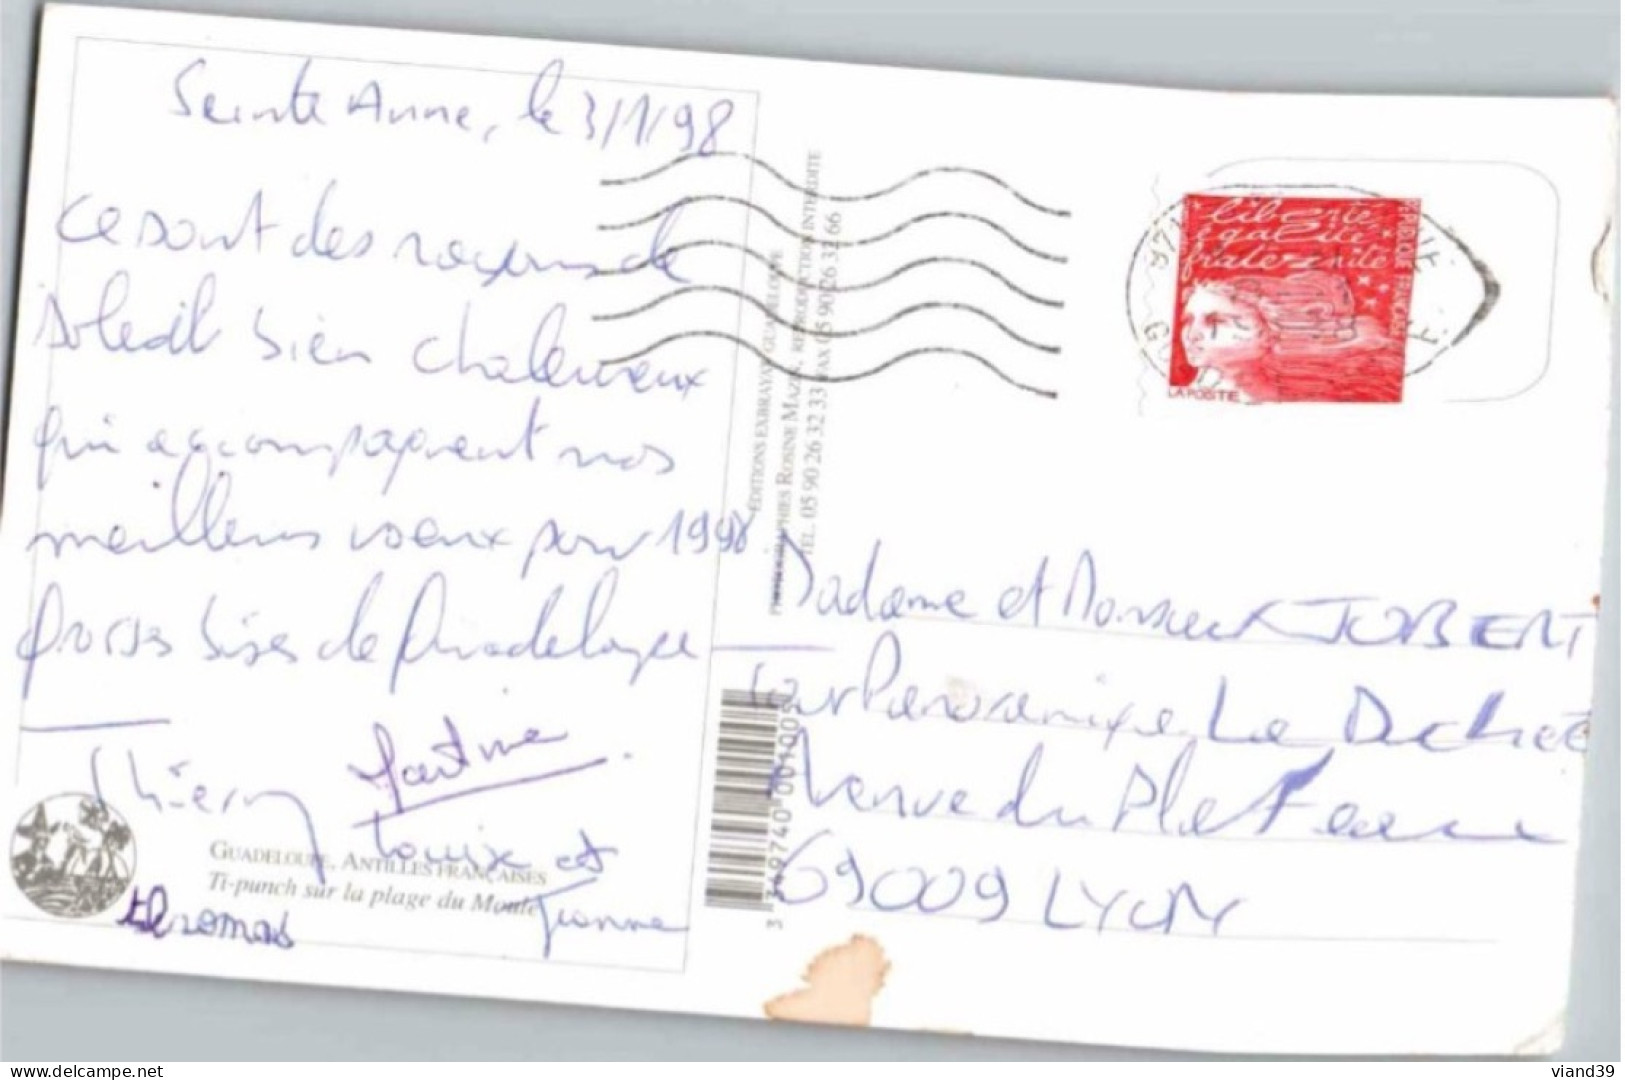 Sainte Anne, le 3/1/98
Ce sont des rayons de
soleil bien chaleureux
qui accompagnent nos
meilleurs voeux pour 1998
grosses bises de Guadeloupe
Thierry
Martine
Louise et
Jeanne
thomas
GUADELOUPE, ANTILLES FRANÇAISES
Ti-punch sur la plage du Moule
ÉDITIONS EXBRAYAT GUADELOUPE
PHOTOGRAPHIES ROSINE MAZIN, REPRODUCTION INTERDITE
TÉL. 05 90 26 32 33 FAX 05 90 26 32 66
liberté
égalité
fraternité
RÉPUBLIQUE FRANÇAISE
LA POSTE
Madame et Monsieur JOBERT
Tour Panoramique La Duchère
Avenue du Plateau
69009 LYON
delcampe.net
viand39